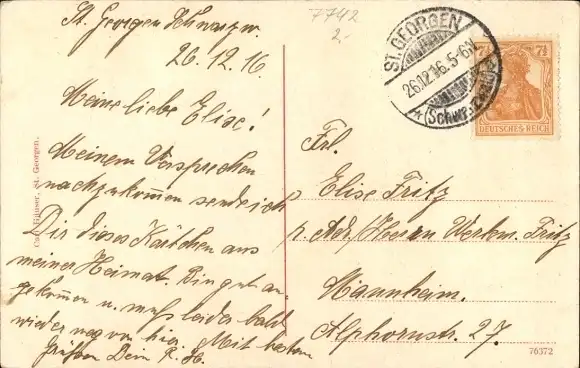 St. Georgen Schwarzw.
26.12.16
Meine liebe Elise!
Meinem Versprechen
nachzukommen sende ich
Dir dieses Kärtchen aus
meiner Heimat. Bin gut an-
gekommen u. muß leider bald
wieder weg von hier. Mit besten
Grüßen Dein R. H.
7742
2.-
ST. GEORGEN
26.12.16.5-6N.
(Schwarzwald)
7½
7½
DEUTSCHES REICH
Frl.
Elise Fritz
p. Adr/Herrn Werkm. Fritz
Mannheim.
Alphornstr. 27.
76372
Carl Häuser, St. Georgen.